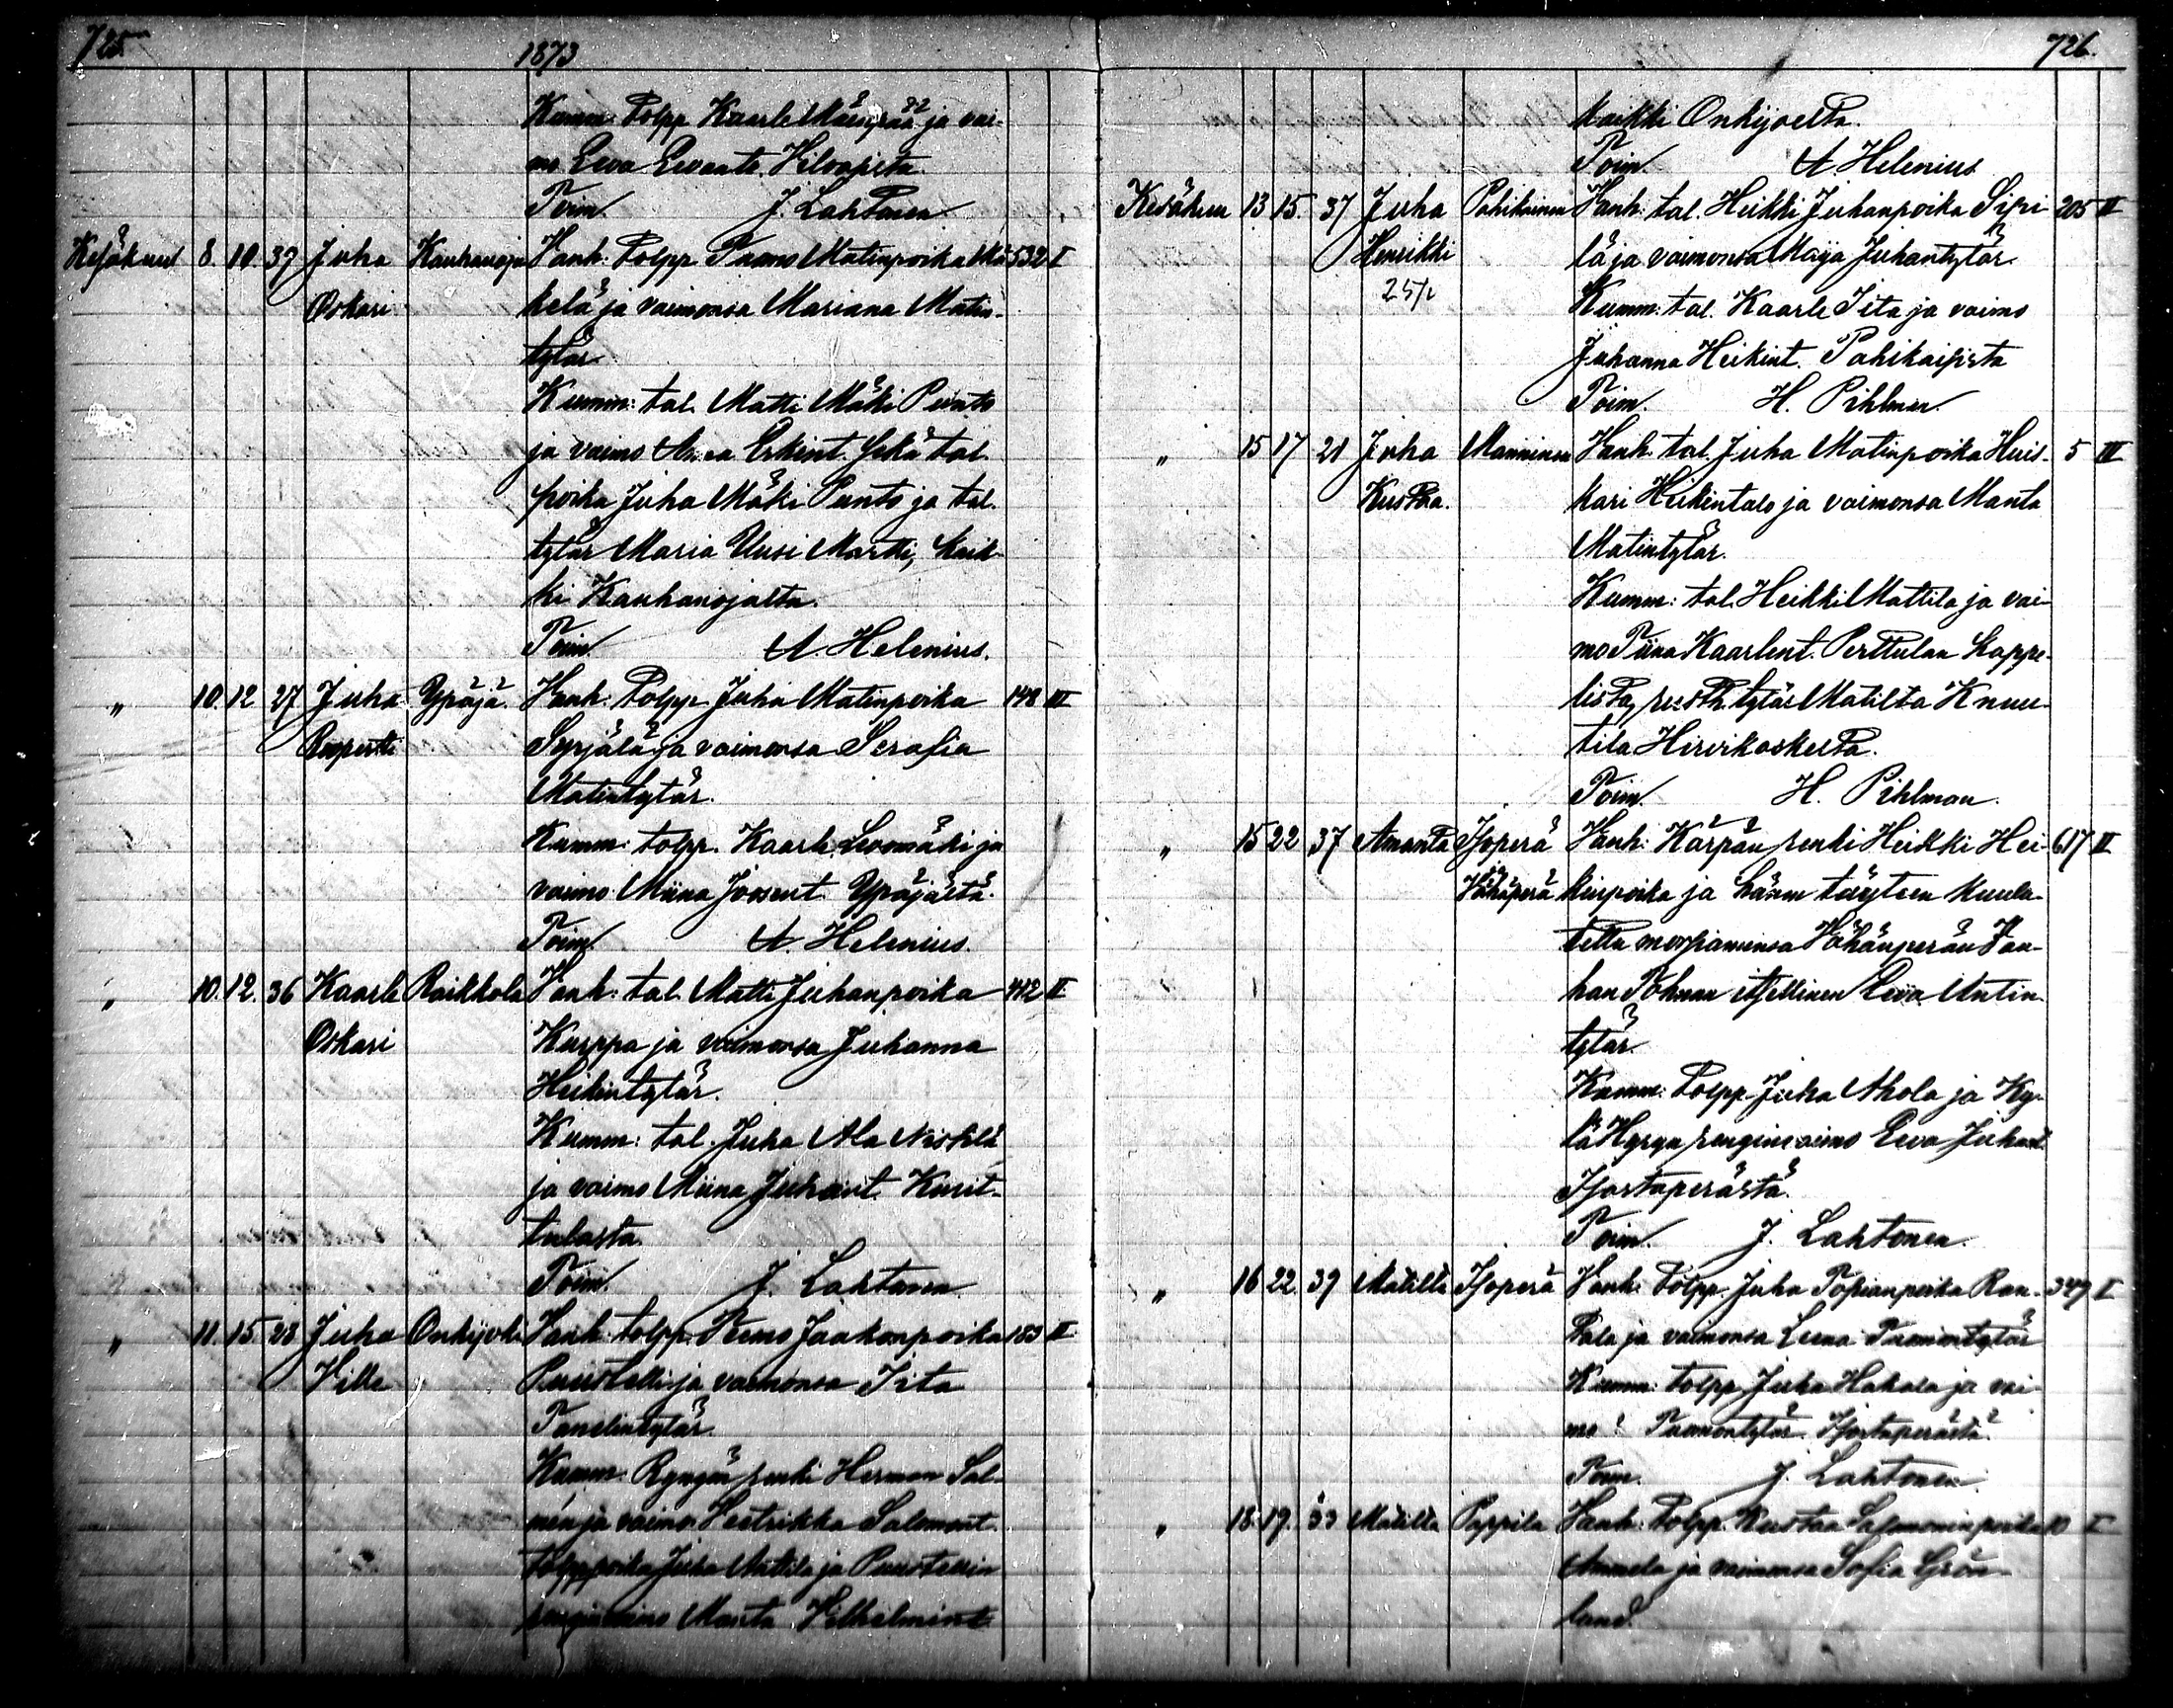 725.
1873
Kumm: Tolpp Kaarle Mäenpää ja vai-
mo Eeva Eevantr. Vilvajista.
Toim. J. Lahtonen
Kesäkuu 8. 10. 37 Juha Kauhanoja Vanh: Tolpp. Tuomo Matinpoika Mä- 532 I
Oskari kelä ja vaimonsa Mariana Matin-
tytär.
Kumm: tal. Matti Mäki Punto
ja vaimo Anna Erkint. Sekä tal.
poika Juha Mäki Punto ja tal.
tytär Maria Uusi Martti, kaik-
ki Kauhanojalta.
Toim. A. Helenius.
" 10. 12 27 Juha Ypäjä. Vanh: Tolpp. Juha Matinpoika 148 III
Ruperti Syrjälä ja vaimonsa Serafia
Matintytär.
Kumm: tolpp. Kaarle Levomäki ja
vaimo Miina Joosent. Ypäjältä.
Toim. A. Helenius.
" 10. 12. 36 Kaarle Raikkola Vanh: tal. Matti Juhanpoika 442 II
Oskari Kurppa ja vaimonsa Juhanna
Heikintytär.
Kumm: tal. Juha Ala Nissilä
ja vaimo Miina Juhant. Kurit-
tulasta.
Toim. J. Lahtonen
" 11. 15. 23 Juha Onkijoki Vanh: tolpp. Teemo Jaakonpoika 183 II
Ville Puustelli ja vaimonsa Iita
Tanelintytär.
Kumm: renki Herman Sal-
mén ja vaimo Hestrikka Salomont.
tolpp poika Juha Anttila ja Puustellin
renginvaimo Manta Vilhelmint.
726.
kaikki Onkijoelta.
Toim. A. Helenius
Kesäkuu 13 15 37 Juha Pahikainen Vanh: tal. Heikki Juhanpoika Sipi- 205 II
Henrikki lä ja vaimonsa Maija Juhantytär
25/1 Kumm: tal. Kaarle Iita ja vaimo
Juhanna Heikint. Pahikaisista
Toim. H. Pihlman.
" 15 17 21 Juha Manninen Vanh: tal. Juha Matinpoika Huis- 5 III
Kustaa. kari Heikintalo ja vaimonsa Manta
Matintytär.
Kumm: tal. Heikki Mattila ja vai-
mo Tiina Kaarlent. Perttulan kappe-
lista, tytär Matilta Knuu-
tila Hirvikoskelta.
Toim. H. Pihlman.
" 15 22 37 Amanta Isoperä Vanh: Kärpän renki Heikki Hei- 617 II
ja Vähäperä kinpoika ja hänen täyteen kuulu-
tettu morsiamensa Vähänperän Van-
han Tohman itsellinen Eeva Antin
tytär.
Kumm: Tolpp. Juha Ahola ja Ky-
lä Hyryn renginvaimo Eeva Juhant.
Isostaperästä.
Toim. J. Lahtonen.
" 16 22 39 Matilta Isoperä Vanh: Tolpp. Juha Topianpoika Ran- 349 I
tala ja vaimonsa Leena Tuomontytär
Kumm: tolpp Juha Hakala ja vai-
mo ? Tuomontytär Isostaperästä.
Toim. J. Lahtonen.
" 18. 19. 33 Matilta Pappila Vanh: Tolpp. Kustaa Salomoninpoika 10 I
Ammela ja vaimonsa Sofia Grön-
land.